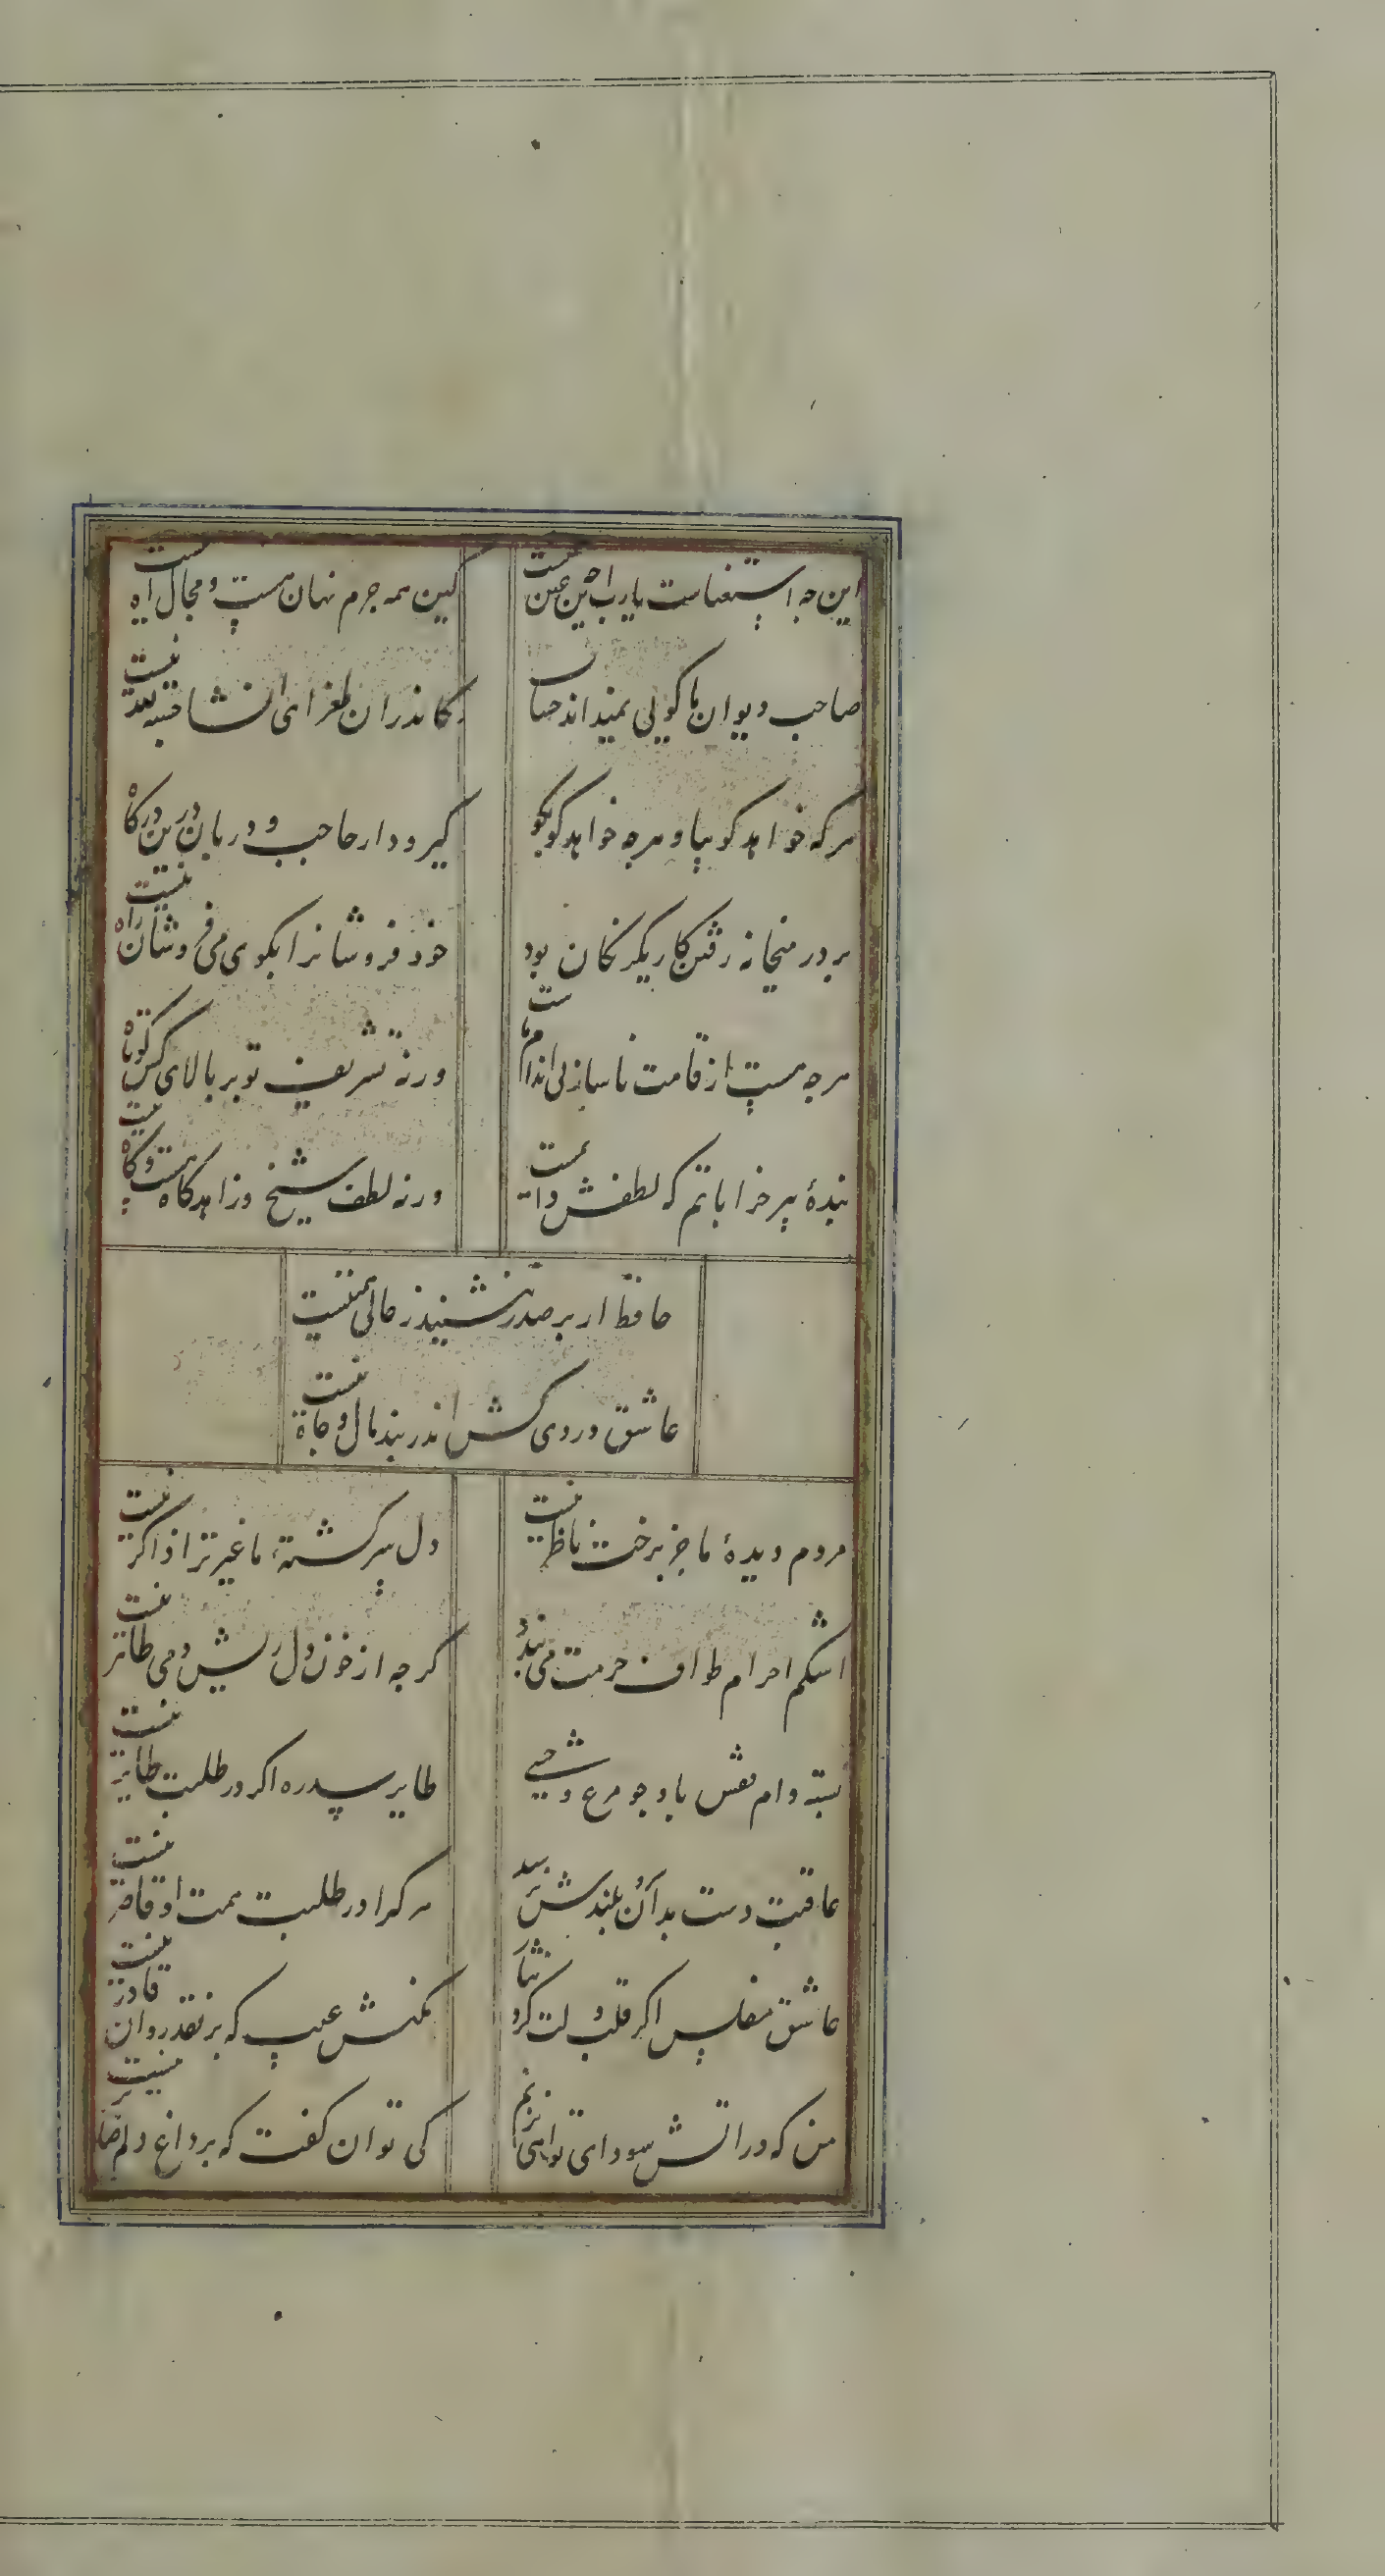 این چه استغناست یارب این چنین
کین همه جرم نهان هست و مجال آه نیست
صاحب دیوان ما گویی نمیداند حساب
کاندران طغرای انشا حسبه لله نیست
هرکه خواهد گو بیا و هرچه خواهد گو بگو
گیر و دار حاجب و دربان درین درگاه نیست
بر در میخانه رفتن کار یکرنگان بود
خود فروشانرا بکوی می فروشان راه نیست
هرچه هست از قامت ناساز بی اندام ماست
ورنه تشریف تو بر بالای کس کوتاه نیست
بندهٔ پیر خراباتم که لطفش دایمست
ورنه لطف شیخ و زاهد گاه هست و گاه نیست
حافظ ار بر صدر ننشیند ز عالی همتیست
عاشق دردی کش اندر بند مال و جاه نیست
مردم دیدهٔ ما جز برخت ناظر نیست
دل سرگشتهٔ ما غیر ترا ذاکر نیست
اشکم احرام طواف حرمت می بندد
گرچه از خون دل ریش دمی طاهر نیست
بسته دام قفس باد چو مرغ وحشی
طایر سدره اگر در طلبت طایر نیست
عاقبت دست بدان سرو بلندش برسد
هرکرا در طلبت همت او قاصر نیست
عاشق مفلس اگر قلب دلت کرد نثار
مکنش عیب که بر نقد روان قادر نیست
من که در آتش سودای تو آهی نزنم
کی توان گفت که بر داغ دلم صابر نیست